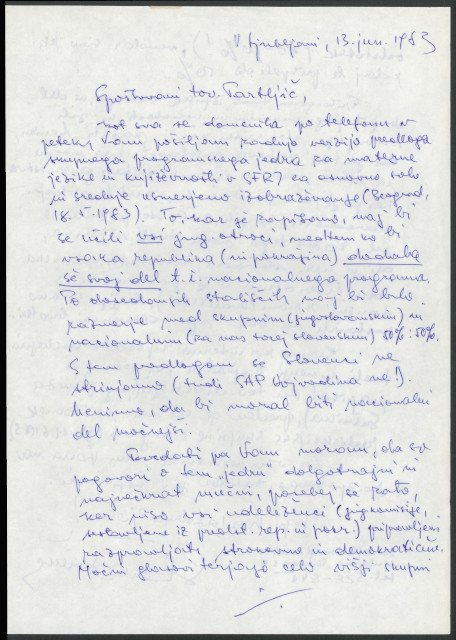 V Ljubljani, 13. jun. 1983
Spoštovani tov. Partljič,
kot sva se domenila po telefonu v
petek, Vam pošiljam zadnjo verzijo predloga
skupnega programskega jedra za materne
jezike in književnosti v SFRJ za osnovno šolo
in srednje usmerjeno izobraževanje (Beograd,
18. 5. 1983). To, kar je zapisano, naj bi
se učili vsi jug. otroci, medtem ko bi
vsaka republika (in pokrajina) dodala
še svoj del t. i. nacionalnega programa.
Po dosedanjih stališčih naj bi bilo
razmerje med skupnim (jugoslovanskim) in
nacionalnim (za nas torej slovenskim) 50% : 50%.
S tem predlogom se Slovenci ne
strinjamo (tudi SAP Vojvodina ne!).
Menimo, da bi moral biti nacionalni
del močnejši.
Povedati pa Vam moram, da so
pogovori o tem „jedru" dolgotrajni in
največkrat mučni, posebej še zato,
ker niso vsi udeleženci (jug. komisije,
sestavljene iz predst. rep. in pokr.) pripravljeni
razpravljati strokovno in demokratično.
Močni glasovi terjajo celo višji skupni